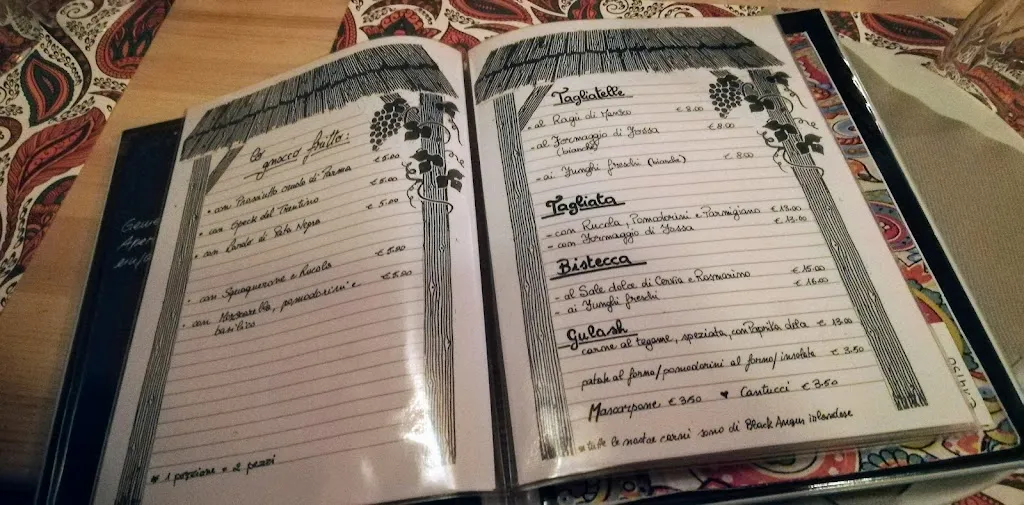 Lo gnocco fritto:
• con Prosciutto crudo di Parma € 5.00
• con Speck del Trentino € 5.00
• con Lardo di Pata Negra € 5.00
• con Squaquerone e Rucola € 5.00
• con Mozzarella, pomodorini e € 5.00
basilico
* 1 porzione = 2 pezzi
Tagliatelle
- al Ragù di Manzo € 8.00
- al Formaggio di Fossa € 8.00
(bianche)
- ai Funghi freschi (bianche) € 8.00
Tagliata
- con Rucola, Pomodorini e Parmigiano € 13.00
- con Formaggio di Fossa € 13.00
Bistecca
- al Sale dolce di Cervia e Rosmarino € 15.00
- ai Funghi freschi € 16.00
Gulash
carne al tegame, speziata, con Paprika dolce € 13.00
patate al forno/pomodorini al forno/insalata € 3.50
Mascarpone € 3.50 ♥ Cantucci € 3.50
* tutte le nostre carni sono di Black Angus irlandese